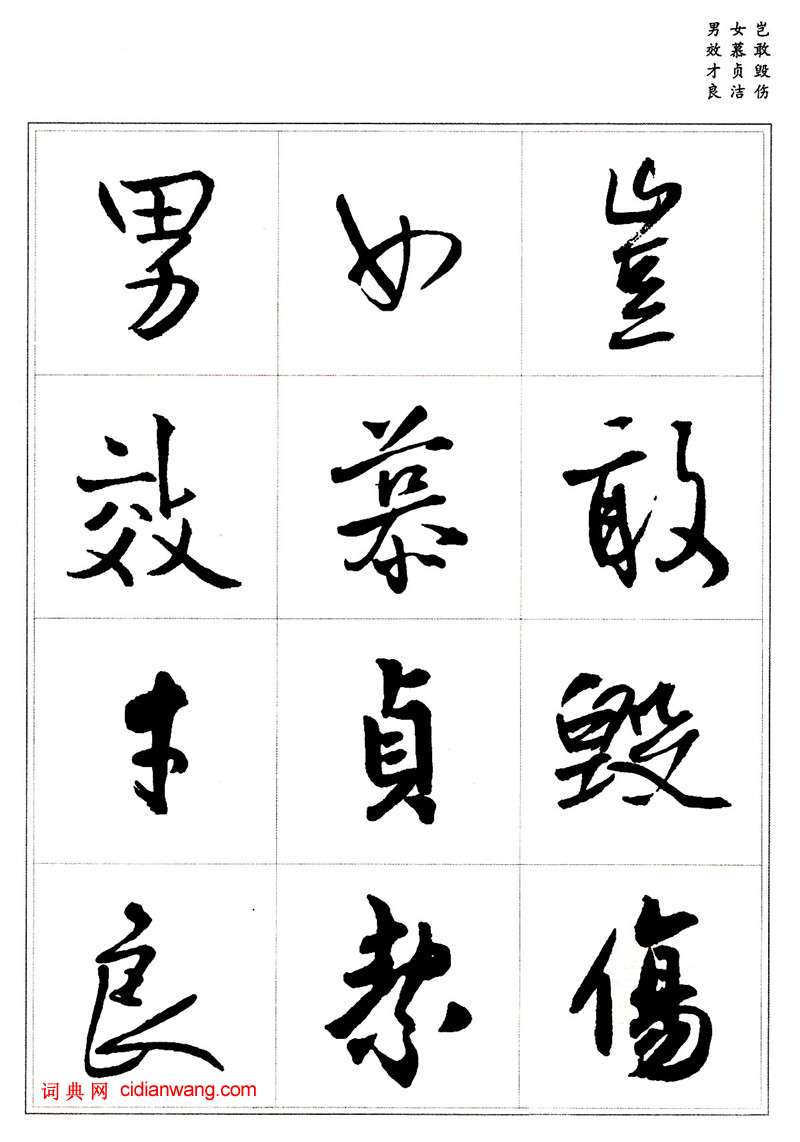 岂敢毁伤
女慕贞洁
男效才良
豈敢毀傷
女慕貞絜
男效才良
词典网 cidianwang.com